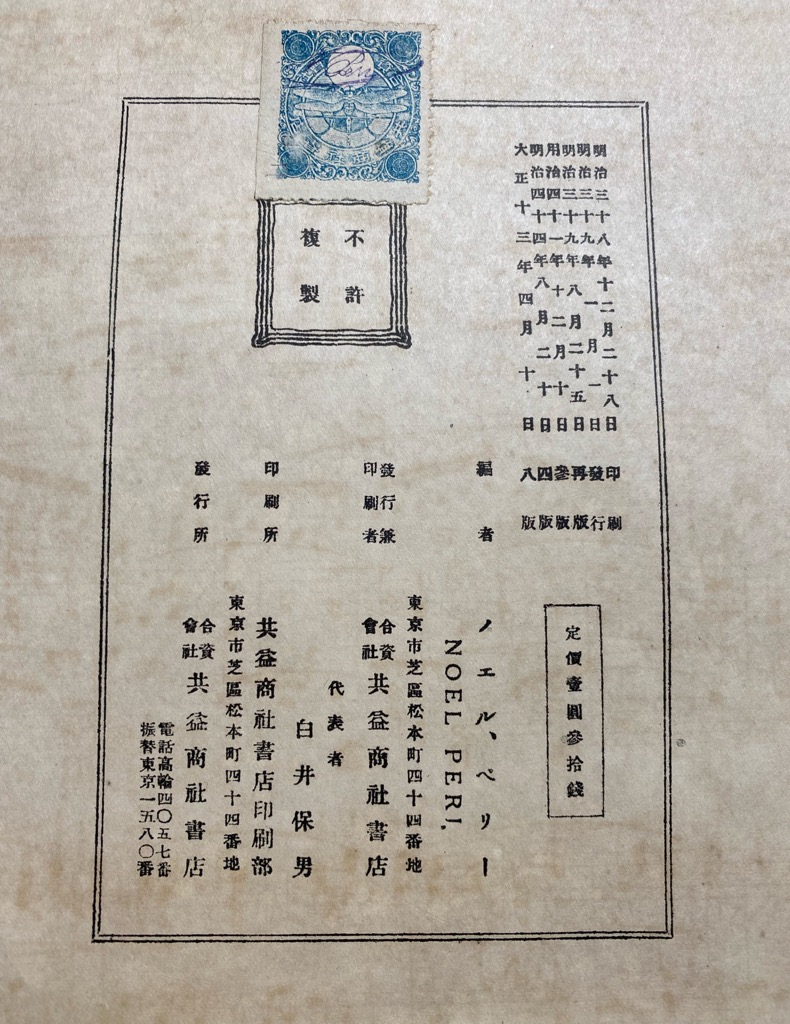 明治三十八年十二月二十八日印刷
明治三十九年一月一日發行
明治三十九年八月二十五日再版
用治四十一年十二月十日參版
明治四十四年八月二十日四版
大正十三年四月十日八版
定價壹圓參拾錢
不許
複製
編者
ノエル、ペリー
NOEL PERI,
發行兼
印刷者
東京市芝區松本町四十四番地
合資
會社
共益商社書店
代表者
白井保男
印刷所
共益商社書店印刷部
東京市芝區松本町四十四番地
發行所
合資
會社
共益商社書店
電話高輪四〇五七番
振替東京一五八〇番